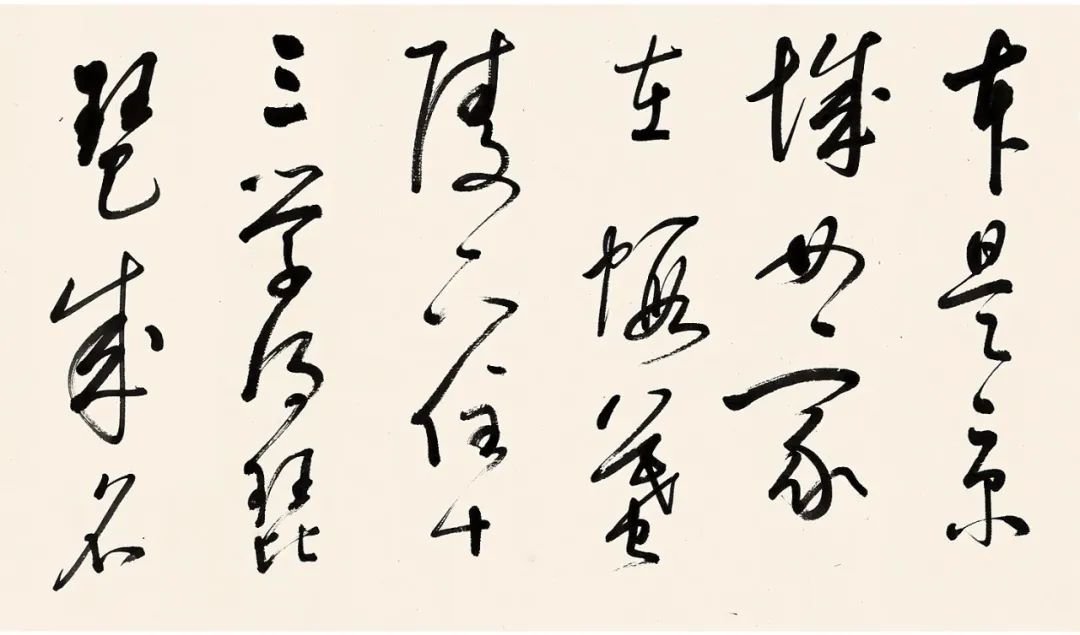 本是京
城女家
在蝦蟇
陵下住十
三学得琵
琶成名